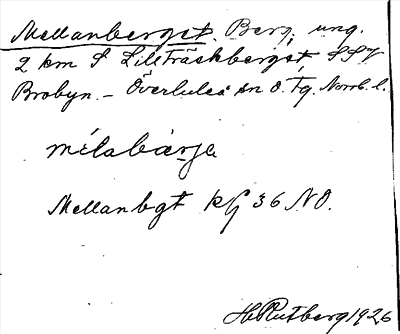 Mellanberget. Berg, ung.
2 km S Lillträskberget, SSV
Brobyn. – Överluleå sn o. Tg. Norrb. l.
mélabärje
Mellanbgt kf 36 NO.
H Rutberg 1926